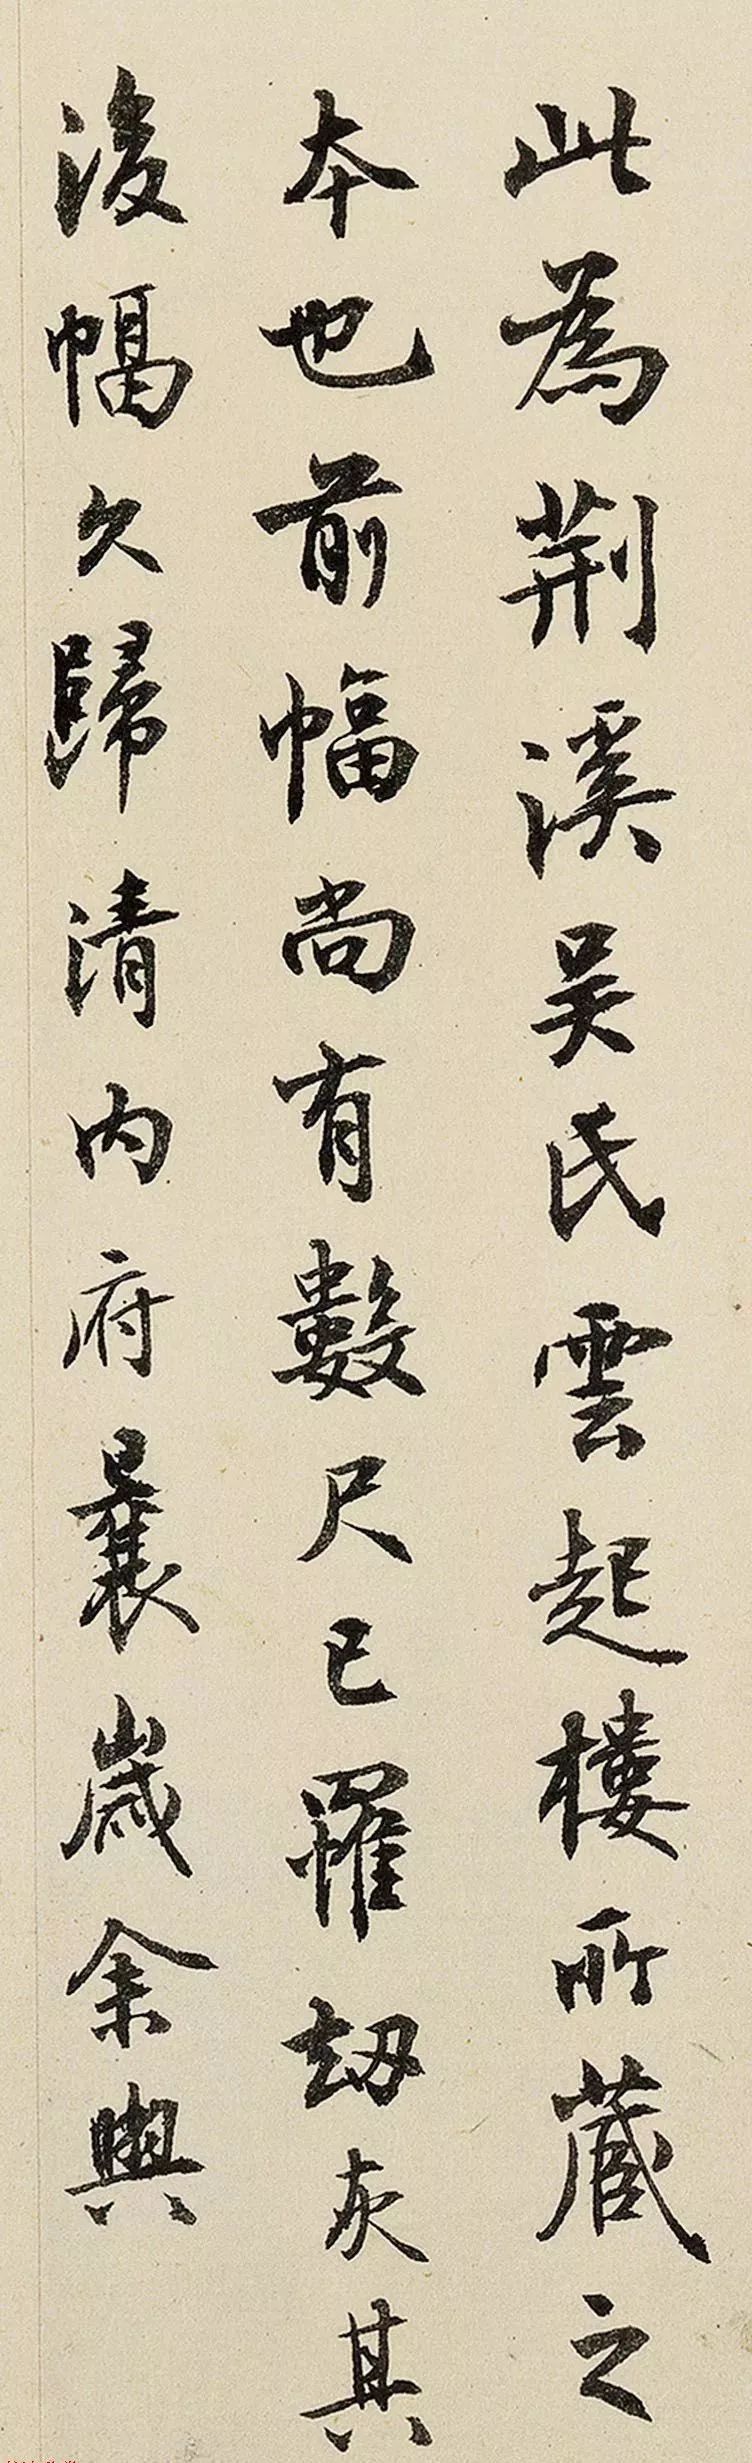 此為荆溪吴氏雲起樓所蔵之
本也前幅尚有數尺已罹劫灰其
後幅久歸清内府曩歲余與